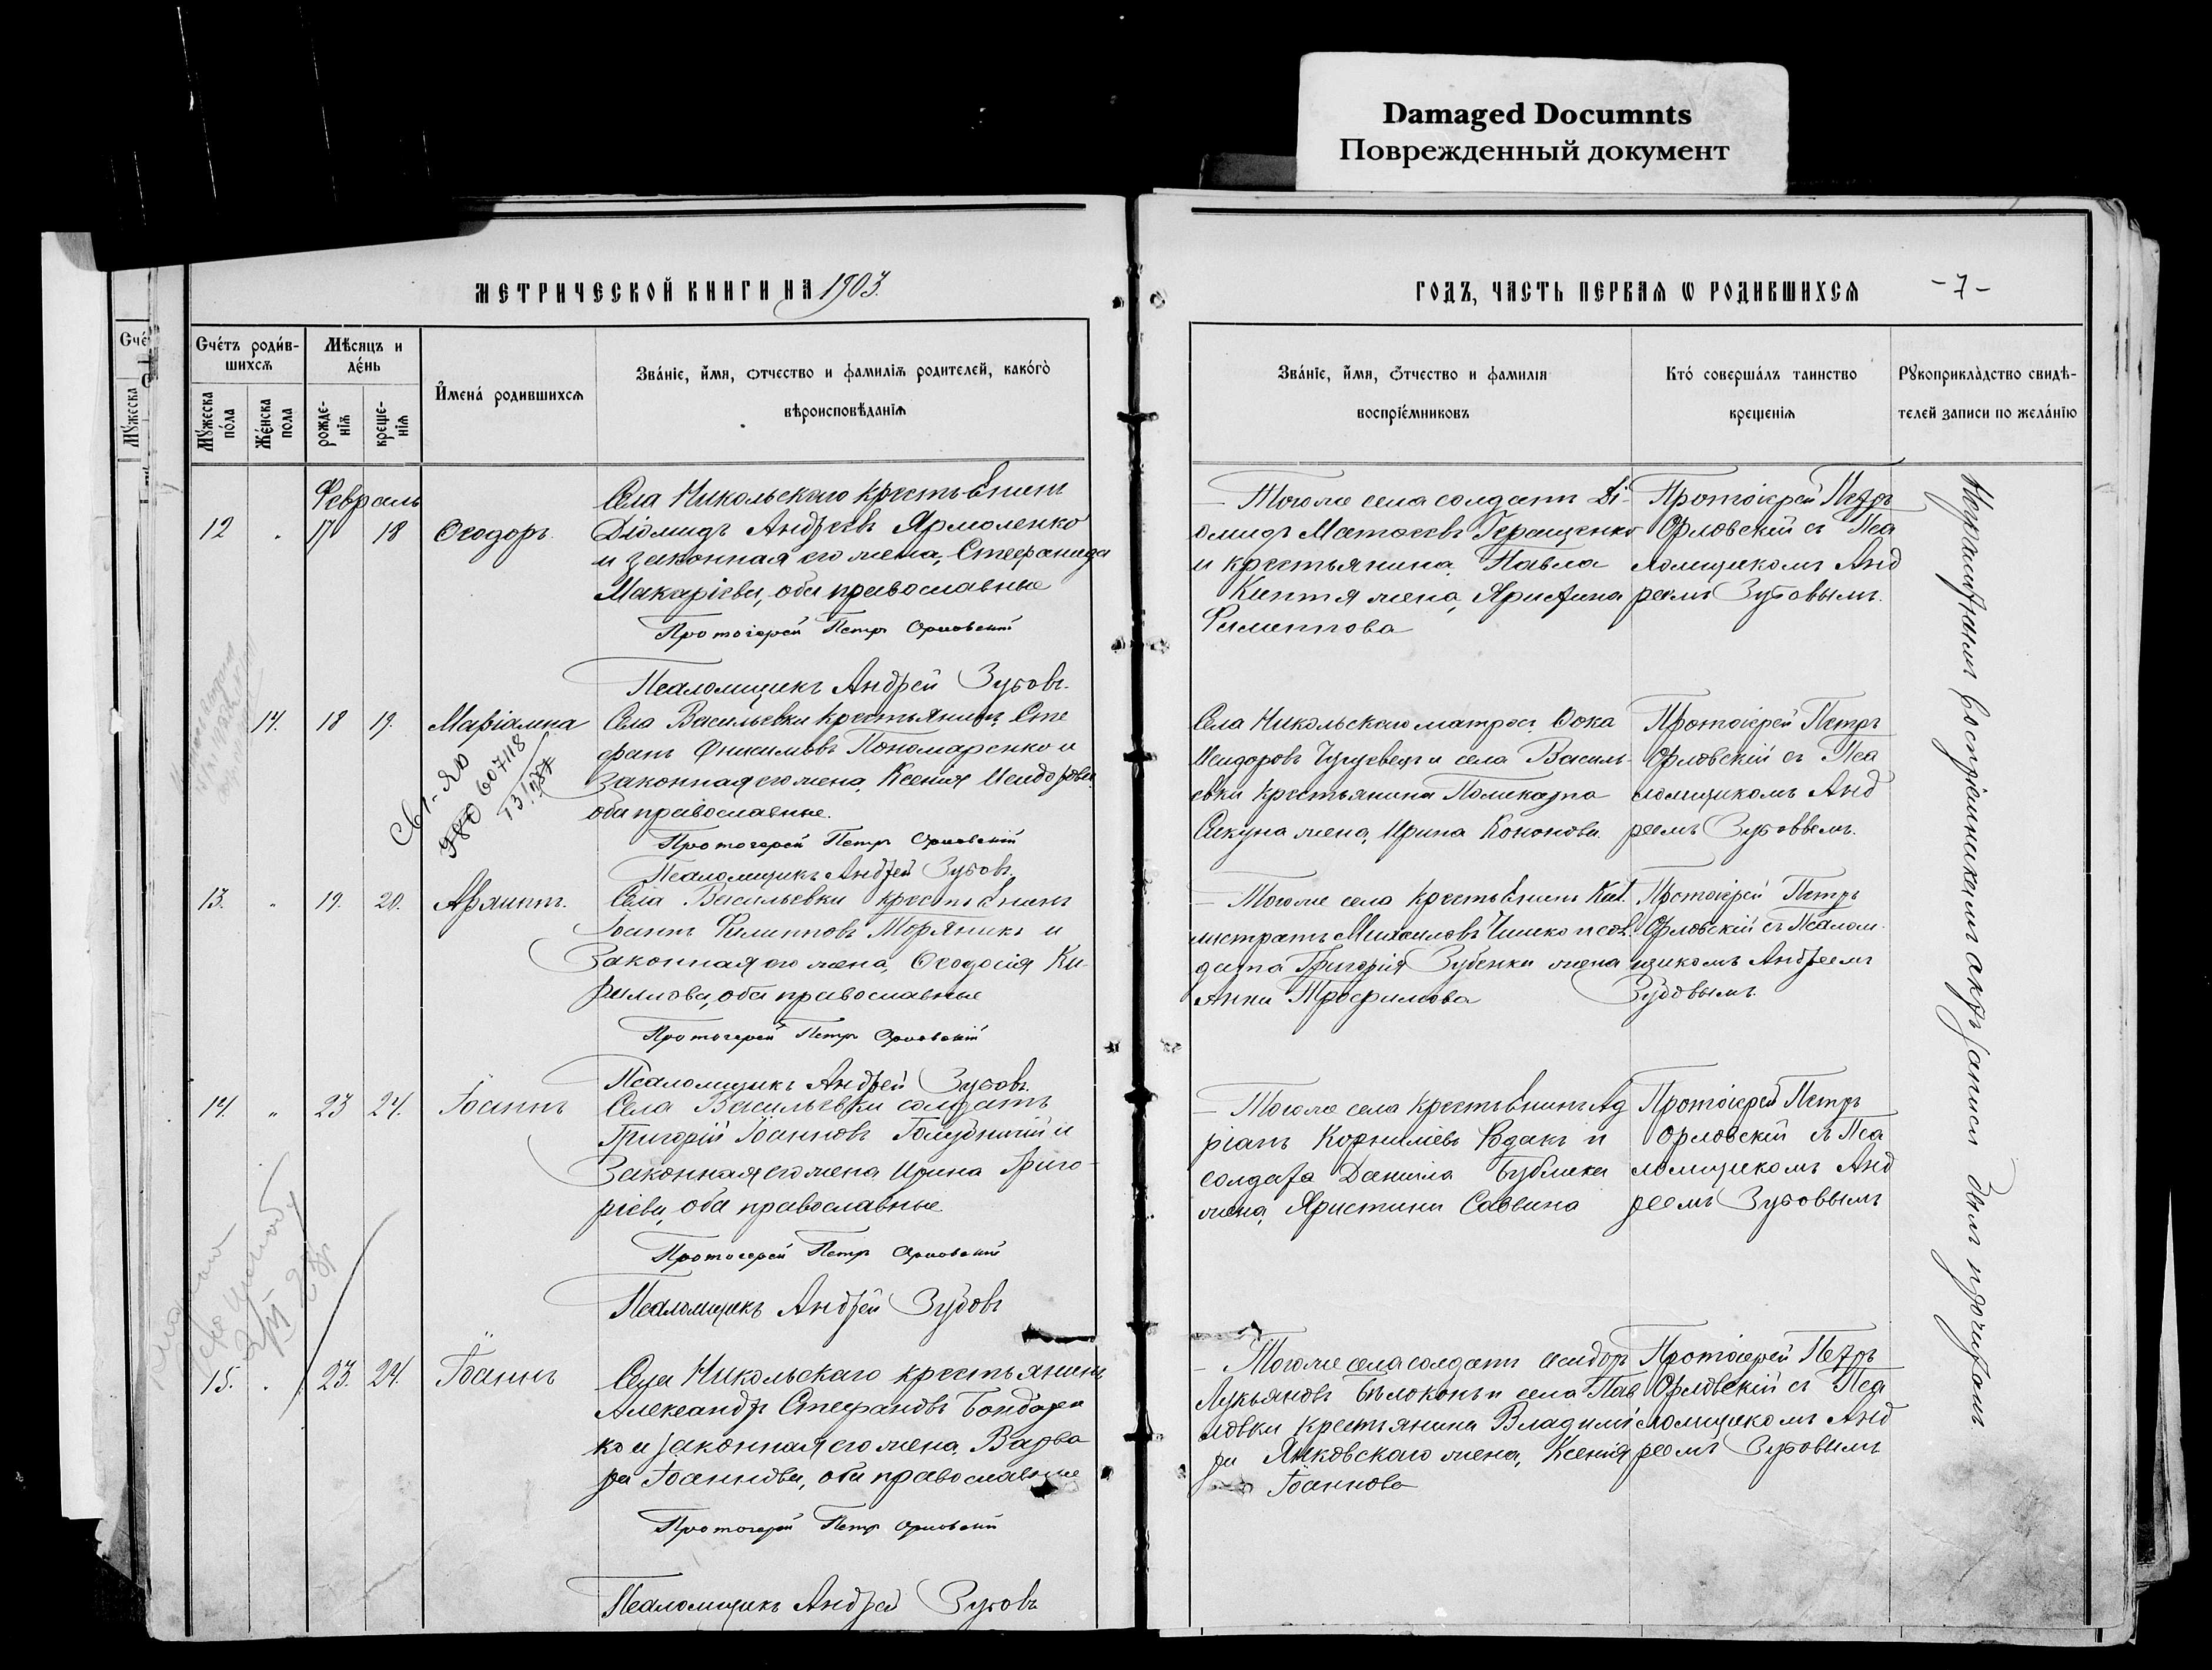 Damaged Documnts
Поврежденный документ
МЕТРИЧЕСКОЙ КНИГИ НА 1903.
ГОДЪ, ЧАСТЬ ПЕРВАЯ Ѡ РОДИВШИХСЯ
- 7 -
Счетъ родив-
шихся
Мужеска
пола
Женска
пола
Мѣсяцъ и
день
рожде-
нія
креще-
нія
Имена родившихся
Званіе, имя, отчество и фамилія родителей, какого
вѣроисповѣданія
Званіе, имя, отчество и фамилія
воспріемниковъ
Кто совершалъ таинство
крещенія
Рукоприкладство свидѣ-
телей записи по желанію
Февраль
12 17 18 Ѳеодоръ.
Села Никольскаго крестьянинъ
Діомидъ Андреевъ Ярмоленко
и законная его жена, Стефанида
Макаріева, оба православные
Протоіерей Петръ Орловскій
Псаломщикъ Андрей Зубовъ.
Тогоже села солдатъ Ді-
омидъ Матѳеевъ Геращенко
и крестьянина Павла
жена, Христина
Филиппова
Протоіерей Петръ
Орловскій съ Пса
ломщикомъ Анд
реемъ Зубовымъ.
14. 18 19. Маріамна
Села Васильевки крестьянинъ Сте
фанъ Онисимовъ Пономаренко и
законная его жена, Ксенія Исидорова
оба православные.
Протоіерей Петръ Орловскій
Псаломщикъ Андрей Зубовъ.
Села Никольскаго матросъ Ѳока
Исидоровъ Чугуевецъ и села Василь-
евки крестьянина Поликарпа
жена, Ирина Кононова.
Протоіерей Петръ
Орловскій съ Пса
ломщикомъ Анд
реемъ Зубовымъ.
13. 19. 20. Африканъ.
Села Васильевки крестьянинъ
Іоаннъ Филипповъ Моряникъ и
Законная его жена, Ѳеодосія Ки-
рилова, оба православные
Протоіерей Петръ Орловскій
Псаломщикъ Андрей Зубовъ.
Тогоже села крестьянинъ Кал.
листратъ Михаиловъ и сол.
дата Григорія Зубенка жена
Анна Трофимова
Протоіерей Петръ
Орловскій съ Псалом-
щикомъ Андреемъ
Зубовымъ.
14. 23 24. Іоаннъ
Села Васильевки солдатъ
Григорій Іоанновъ Голубничій и
Законная его жена Ирина Григо-
ріева, оба православные
Протоіерей Петръ Орловскій
Псаломщикъ Андрей Зубовъ
Тогоже села крестьянинъ Ад
ріанъ Корниліевъ и
солдата Даніила Бублика
жена, Христина Саввина
Протоіерей Петръ
Орловскій съ Пса
ломщикомъ Анд
реемъ Зубовымъ
15. 23. 24. Іоаннъ
Села Никольскаго крестьянинъ
Александръ Стефановъ Бондарен
ко и законная его жена, Варва
ра Іоаннова, оба православные
Протоіерей Петръ Орловскій
Псаломщикъ Андрей Зубовъ
Тогоже села солдатъ Исидоръ
Лукьяновъ Бѣлоконь и села Пав
ловки крестьянина Владими
ра Янковскаго жена, Ксенія
Іоаннова
Протоіерей Петръ
Орловскій съ Пса
ломщикомъ Анд
реемъ Зубовымъ